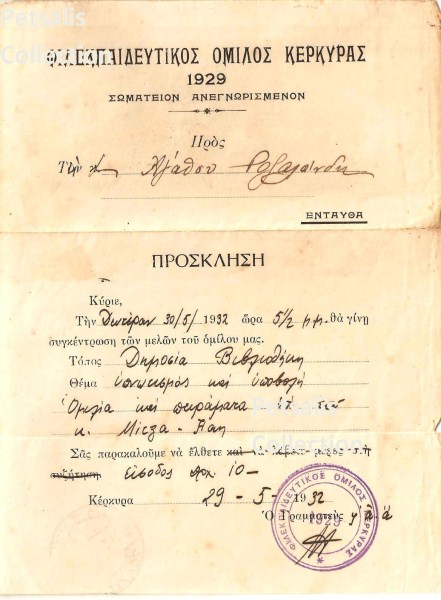 Petsalis
Collection
ΦΙΛΕΚΠΑΙΔΕΥΤΙΚΟΣ ΟΜΙΛΟΣ ΚΕΡΚΥΡΑΣ
1929
ΣΩΜΑΤΕΙΟΝ ΑΝΕΓΝΩΡΙΣΜΕΝΟΝ
Πρὸς
Τὴν
ΕΝΤΑΥΘΑ
ΠΡΟΣΚΛΗΣΗ
Κύριε,
Τὴν Δευτέραν 30/5/1932 ὥρα 5½ μμ. θὰ γίνῃ
συγκέντρωση τῶν μελῶν τοῦ ὁμίλου μας.
Τόπος Δημοσία Βιβλιοθήκη
Θέμα ὑπνωτισμὸς καὶ ὑποβολή
Ὁμιλία καὶ πειράματα ὑπὸ τοῦ
κ.
Petsalis
Collection
Σᾶς παρακαλοῦμε νὰ ἔλθετε καὶ νὰ λάβετε μέρος στὴ
συζήτηση εἴσοδος δρχ. 10-
Κέρκυρα 29-5-1932
Ὁ Γραμματεὺς
ΦΙΛΕΚΠΑΙΔΕΥΤΙΚΟΣ ΟΜΙΛΟΣ ΚΕΡΚΥΡΑΣ
1929